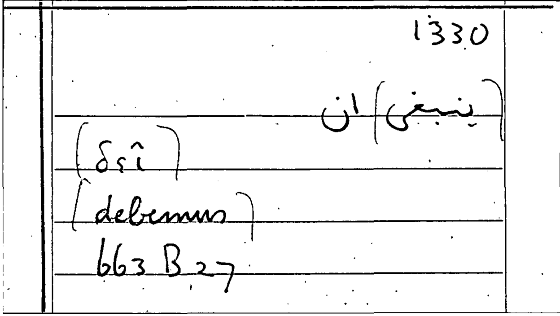 1330
(ينبغى) ان
(δεῖ)
(debemus)
663 B 27